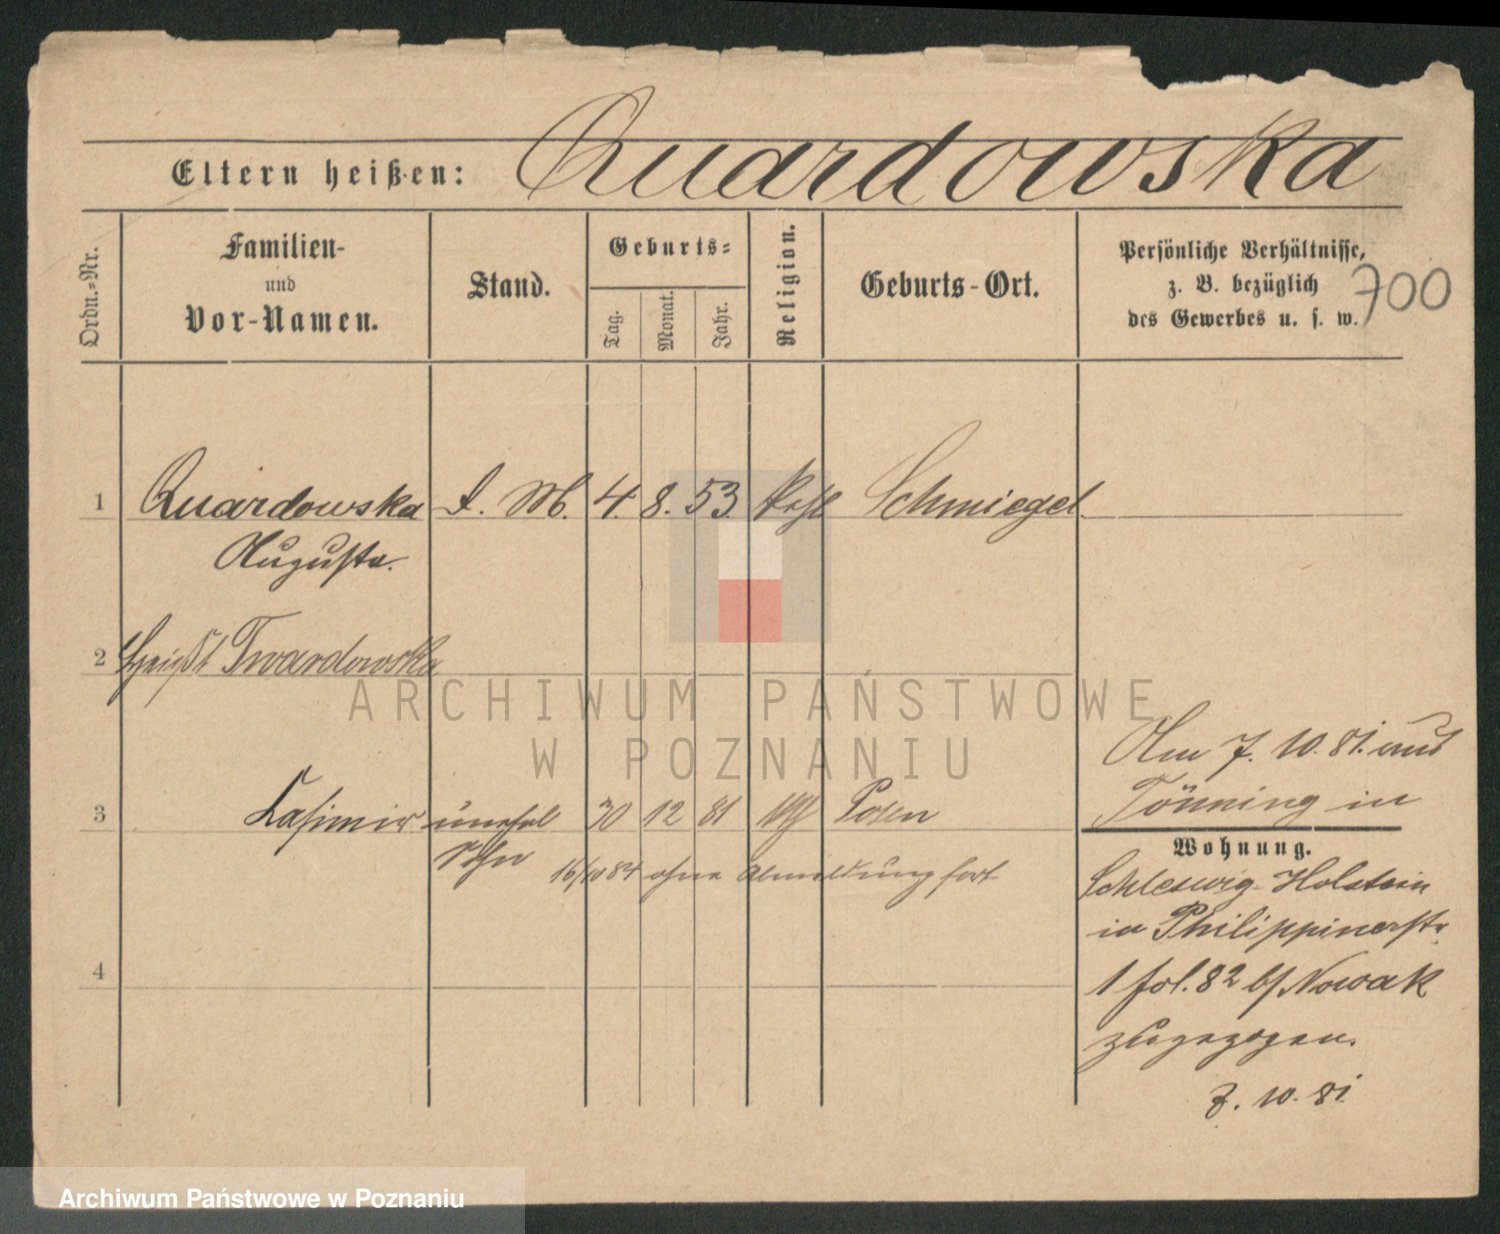 Eltern heißen: Quardowska
Ordn.-Nr.
Familien-
und
Vor-Namen.
Stand.
Geburts-
Tag.
Monat.
Jahr.
Religion.
Geburts-Ort.
Persönliche Verhältnisse,
z. B. bezüglich
des Gewerbes u. s. w.
700
1 Quardowska D. M. 4. 8. 53. kath Schmiegel
Augusta.
2 heißt Twardowska
ARCHIWUM PAŃSTWOWE
W POZNANIU
Am 7. 10. 81. aus
Tönning in
3 Casimir unehel 30 12 81 Posen
Sohn
16/10 84 ohne Abmeldung fort
Wohnung.
Schleswig-Holstein
in Philippinerstr
1 fol. 82 b/ Nowak
zugezogen.
4
7. 10. 81.
Archiwum Państwowe w Poznaniu